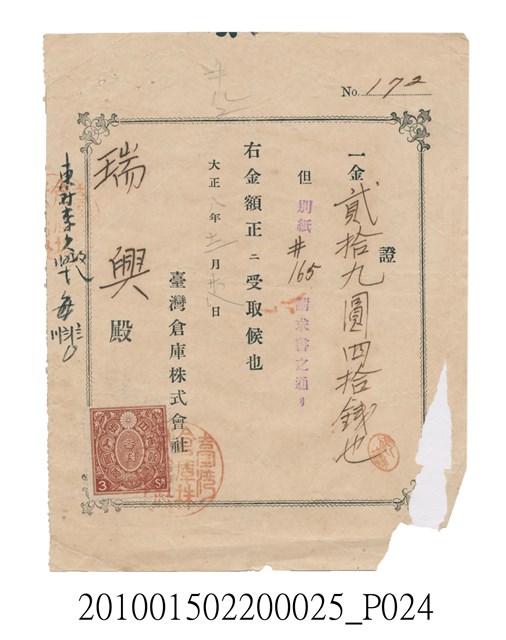 No. 172
證
一金貳拾九圓四拾錢也
但別紙#165請求書之通リ
右金額正ニ受取候也
大正八年十二月 日
臺灣倉庫株式會社
瑞興殿
3 Sn
201001502200025_P024